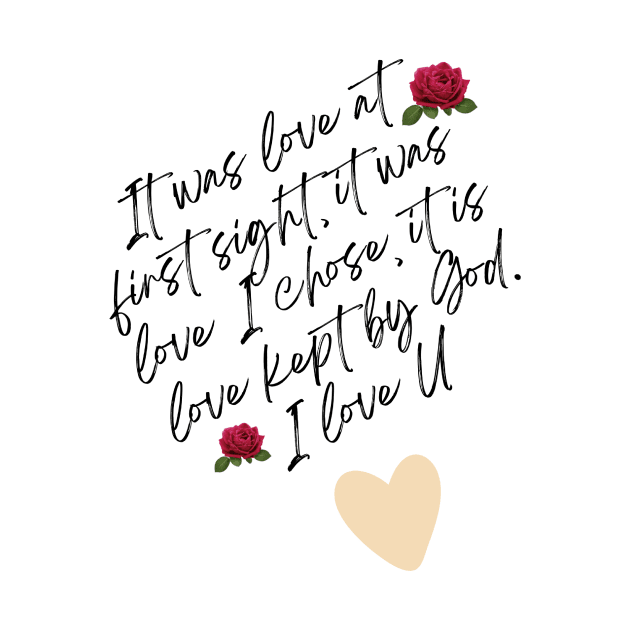 It was love at
first sight, it was
love I chose, it is
love kept by God.
I love U